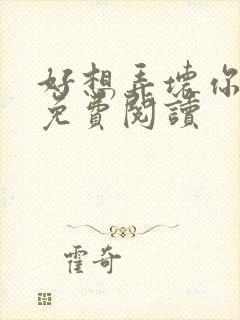 好想弄壞你
免費閱讀
霍奇